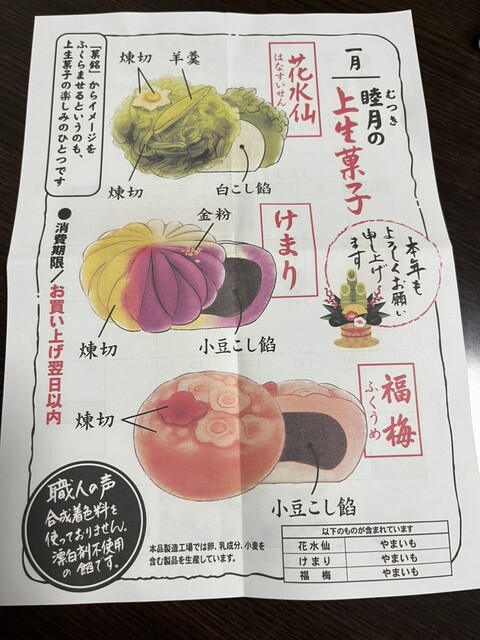 一月
睦月の
むつき
上生菓子
本年も
よろしくお願い
申し上げ
ます
「菓銘」からイメージを
ふくらませるというのも、
上生菓子の楽しみのひとつです
花水仙
はなすいせん
煉切
羊羹
煉切
白こし餡
けまり
金粉
煉切
小豆こし餡
福梅
ふくうめ
煉切
小豆こし餡
●消費期限/お買い上げ翌日以内
職人の声
合成着色料を
使っておりません。
漂白剤不使用
の餡です。
本品製造工場では卵、乳成分、小麦を
含む製品を生産しています。
以下のものが含まれています
花水仙 やまいも
けまり やまいも
福梅 やまいも